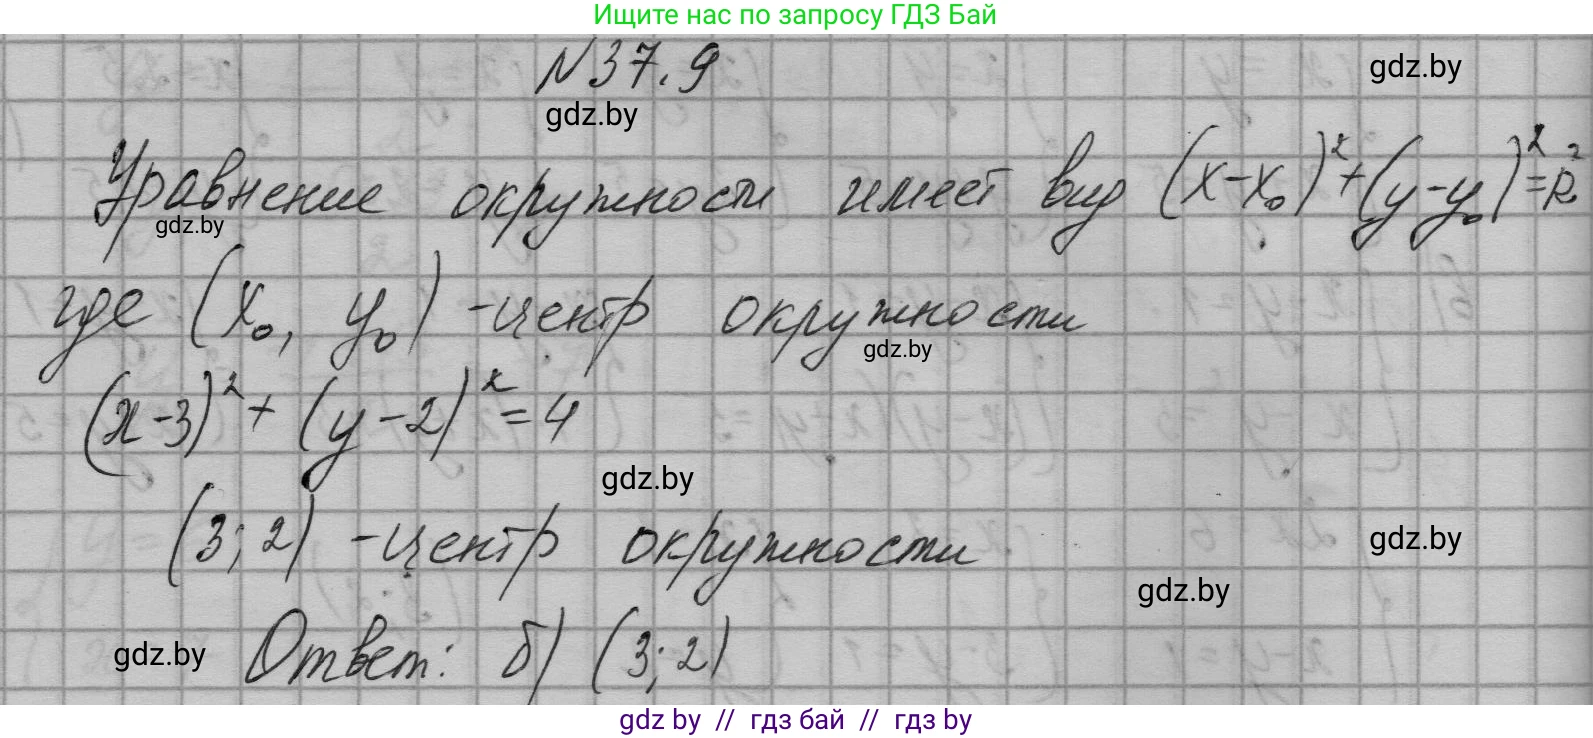 Ищите нас по запросу ГДЗ Бай
N37.9
gdz.by
gdz.by
Уравнение окружности имеет вид (x-x₀)²+(y-y₀)²=R²,
gdz.by
где (x₀, y₀) - центр окружности
gdz.by
(x-3)²+(y-2)²=4
gdz.by
(3;2) - центр окружности
gdz.by
gdz.by
gdz.by
Ответ: б) (3;2)
gdz by // гдз бай // гдз by